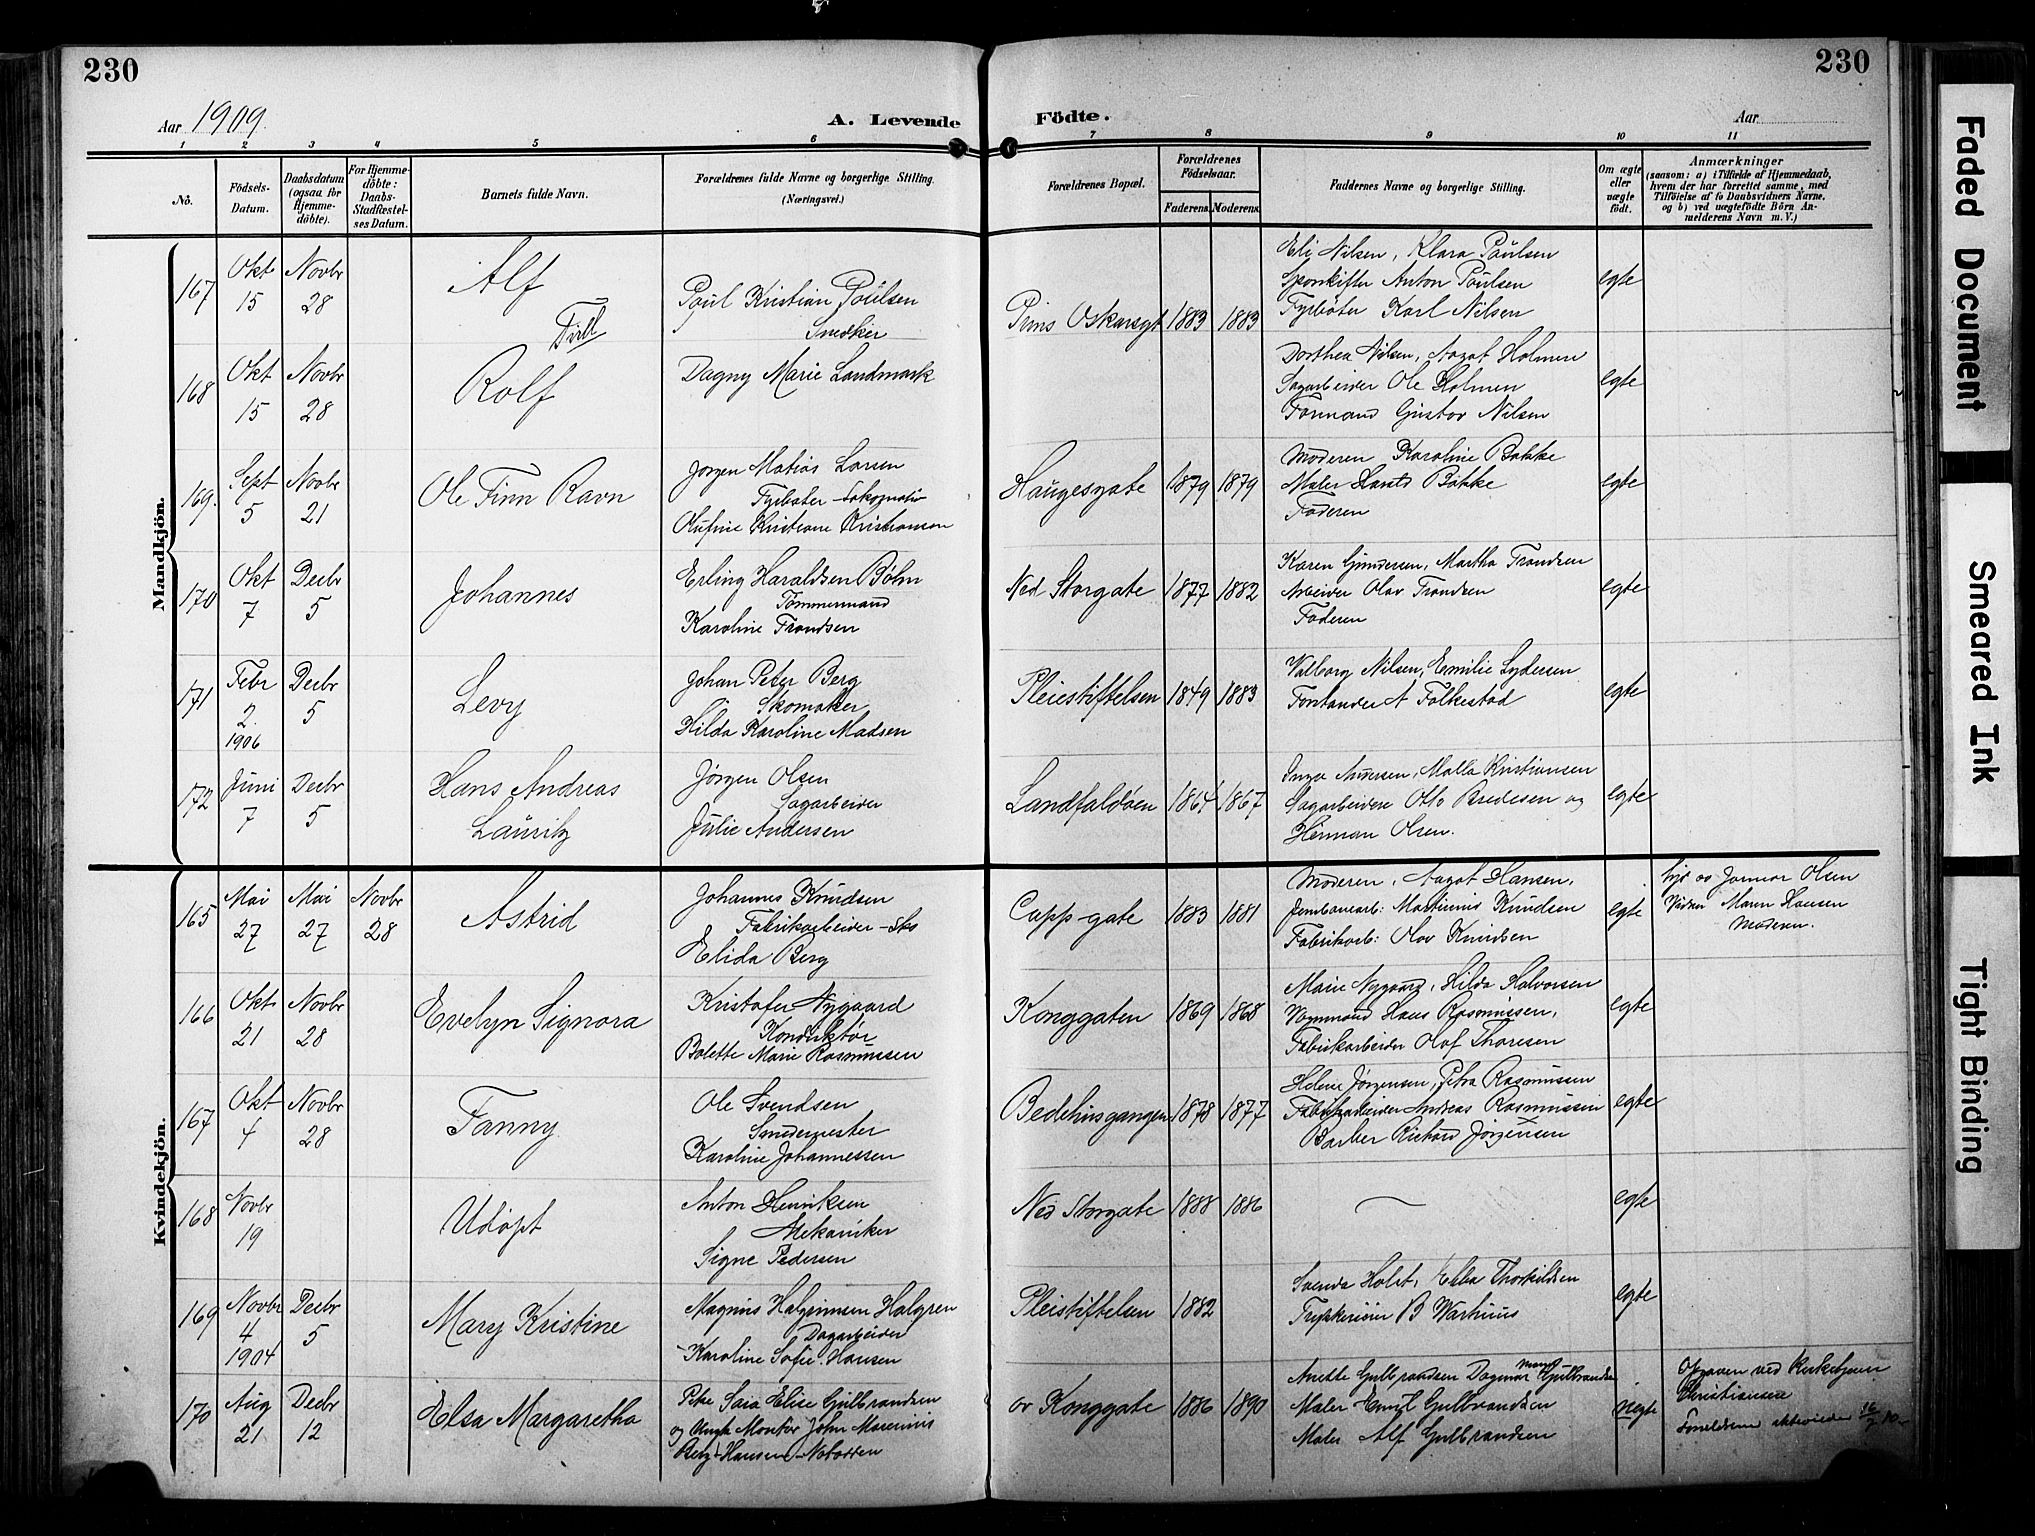 230
230
Aar 1909
A. Levende
Födte.
Aar
1 2 3 4 5 6 7 8 9 10 11
No.
Födsels-Datum.
Daabsdatum (ogsaa for Hjemmedöbte).
For Hjemmedöbte: Daabs-Stadfæstelses Datum.
Barnets fulde Navn.
Forældrenes fulde Navne og borgerlige Stilling. (Næringsvei.)
Forældrenes Bopæl.
Forældrenes Födselsaar.
Faderens. Moderens.
Faddernes Navne og borgerlige Stilling.
Om ægte eller uægte födt.
Anmærkninger
(saasom: a) i Tilfælde af Hjemmedaab, hvem der har forrettet samme, med Tilföielse af to Daabsvidners Navne, og b) ved uægtefödte Börn Anmelderens Navn m. V.)
Mandkjön.
167
Okt 15
Novbr 28
Alf
Tvill
Paul Kristian Poulsen
Snedker
Prins Oskarsgt
1883 1883
Eli Nilsen, Klara Paulsen
Anton Paulsen
Fyrbøter Karl Nilsen
egte
168
Okt 15
Novbr 28
Rolf
Dagny Marie Landmark
Dorthea Nilsen, Aagot Holmen
Sagarbeider Ole Holmen
Formand Gustav Nilsen
egte
169.
Sept 5
Novbr 21
Ole Finn Ravn
Jørgen Matias Larsen
Fyrbøter - Lokomotiv
Olufine Kristiane Kristiansen
Haugesgate
1879 1879
Moderen Karoline Bakke
Maler Harald Bakke
Faderen
egte
170
Okt 7
Decbr 5
Johannes
Erling Haraldsen Bøhn
Tømmermand
Karoline Trondsen
Ned Storgate
1877 1882
Karen Gundersen, Martha Trondsen
Arbeider Olav Trondsen
Faderen
egte
171
Febr 2. 1906
Decbr 5
Levy
Johan Peter Berg
Skomaker
Hilda Karoline Madsen
Pleiestiftelsen
1849 1883
Valborg Nilsen, Emilie Lydersen
A Folkestad
egte
172
Juni 7
Decbr 5
Hans Andreas
Lauritz
Jørgen Olsen
Sagarbeider
Julie Andersen
Landfaldøen
1864 1867
Inga Andersen, Malla Kristiansen
Sagarbeidere Otto Bredesen og
Herman Olsen.
egte
Kvindekjön.
165
Mai 27
Mai 27
Novbr 28
Astrid
Johannes Knudsen
Fabrikarbeider - Sko
Elida Berg
Cappgate
1883 1881
Moderen, Aagot Hansen,
Jernbanearb: Martinius Knudsen
Fabrikarb: Olav Knudsen
egte
Olsen
Maren Hansen
Moderen.
166
Okt 21
Novbr 28
Evelyn Signora
Kristofer Nygaard
Konduktør
Bolette Marie Rasmussen
Konggaten
1869 1868
Marie Nygaard, Hilda Halvorsen
Vognmand Hans Rasmussen,
Fabrikarbeider Olaf Thoresen
egte
167
Okt 4
Novbr 28
Fanny
Ole Svendsen
Smedmester
Karoline Johannessen
Bedehusgangen
1878 1877
Helene Jørgensen, Petra Rasmussen
Fabrikarbeider Andreas Rasmussen
Barber Richard Jørgensen
egte
168
Novbr 19
Udøpt
Anton Henriksen
Mekaniker
Signe Pedersen
Ned Storgate
1888 1886
egte
169
Novbr 4 1904
Decbr 5
Mary Kristine
Magnus Halgrimsen Halgren
Dagarbeider
Karoline Sofie Hansen
Pleistiftelsen
1882
Svenda Holst, Elba Thorkildsen
B Warhuus
egte
170
Aug 21
Decbr 12
Elsa Margaretha
Pike Saia Elise Gulbrandsen
og Ungk Montør John Maximus
Berg-Hansen - Notodden
øv Konggate
1886 1890
Anette Gulbrandsen Dagmar Gulbrandsen
Maler Emil Gulbrandsen
Maler Alf Gulbrandsen
uegte
Opgaven ved
Christiansen
Forældrene ektevieder 16/7 10
Faded Document
Smeared Ink
Tight Binding